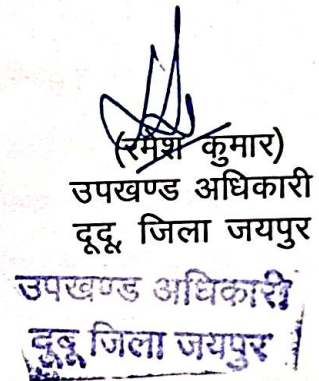 (रमेश कुमार)
उपखण्ड अधिकारी
दूदू, जिला जयपुर
उपखण्ड अधिकारी
दूदू जिला जयपुर